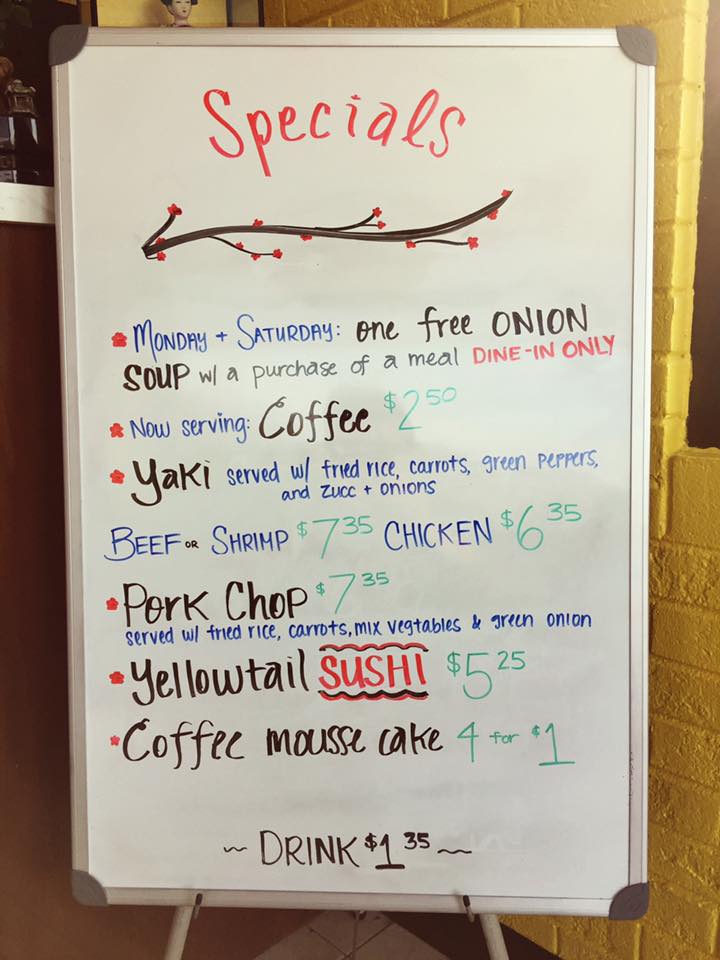 Specials
Monday + Saturday: one free ONION
SOUP w/ a purchase of a meal DINE-IN ONLY
Now serving: Coffee $2 50
Yaki served w/ fried rice, carrots, green peppers,
and zucc + onions
BEEF OR SHRIMP $7 35 CHICKEN $6 35
Pork Chop $7 35
served w/ fried rice, carrots, mix vegtables & green onion
Yellowtail SUSHI $5 25
Coffee mousse cake 4 for $1
~ DRINK $1 35 ~